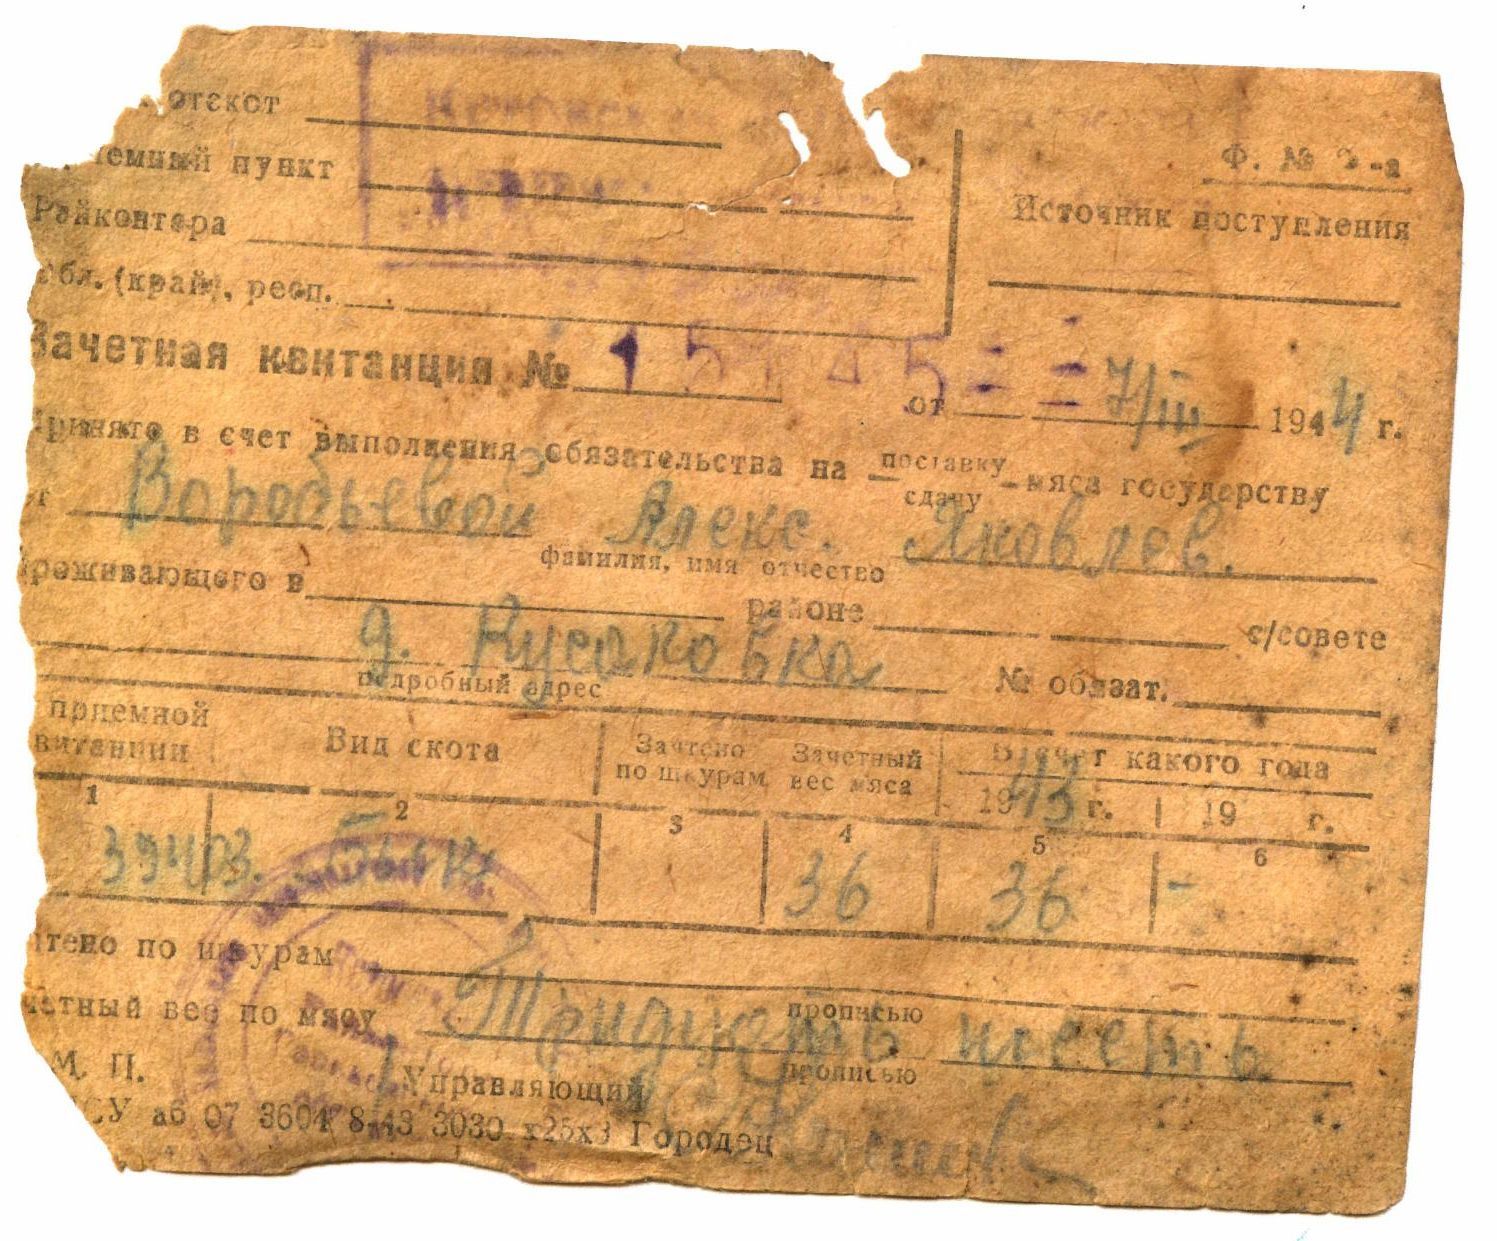 отскот
емный пункт
Ф. № -а
Райконтора
Источник поступления
Обл. (край), респ.
Зачетная квитанция № 15145 = = от 7/III 1944 г.
Принято в счет выполнения обязательства на поставку/сдачу мяса государству
от Воробьевой Алекс. Яковлев.
фамилия, имя отчество
проживающего в районе с/совете
д. Кусаковка № обязат.
подробный адрес
приемной квитанции Вид скота Зачтено по шкурам Зачетный вес мяса В счет какого года
1943 г. 19 г.
1 2 3 4 5 6
39403. бык 36 36 -
чтено по шкурам
прописью
четный вес по мясу Тридцать шесть
прописью
М. П. Управляющий
СУ аб 07 3604 8-43 3030 х25х3 Городец